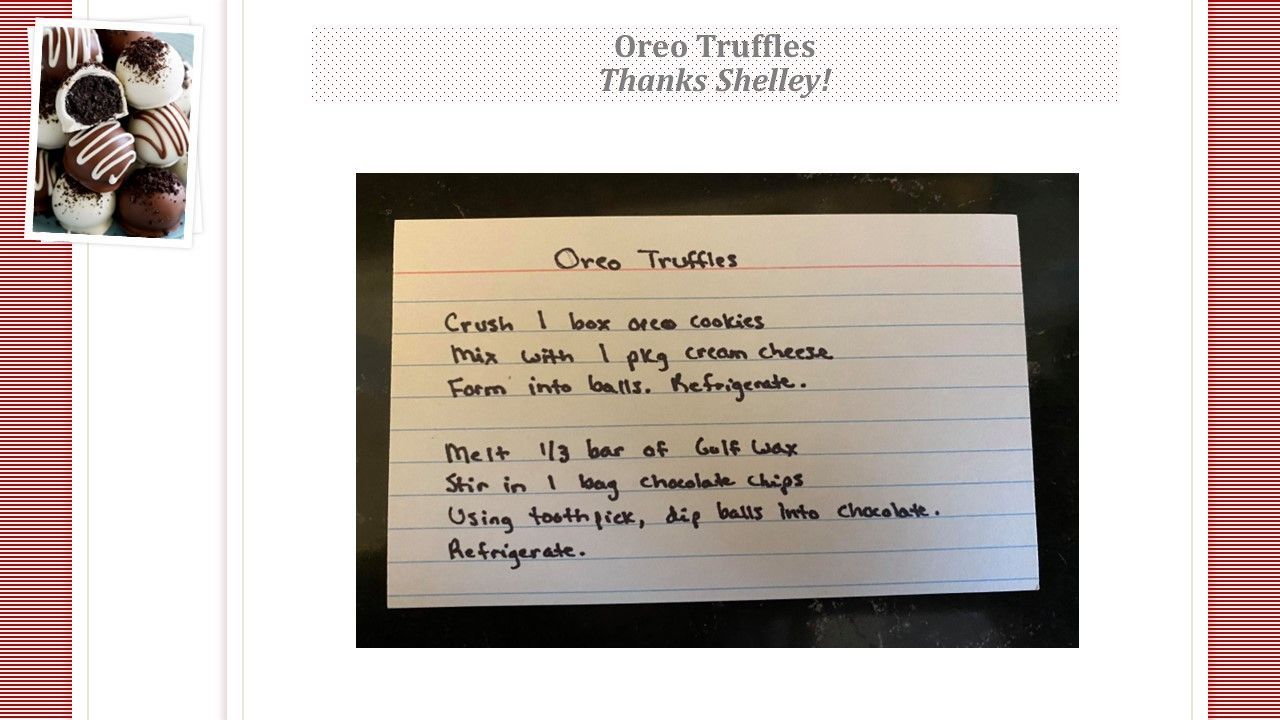 Oreo Truffles
Thanks Shelley!
Oreo Truffles
Crush 1 box oreo cookies
Mix with 1 pkg cream cheese
Form into balls. Refrigerate.
Melt 1/3 bar of Gulf Wax
Stir in 1 bag chocolate chips
Using toothpick, dip balls into chocolate.
Refrigerate.